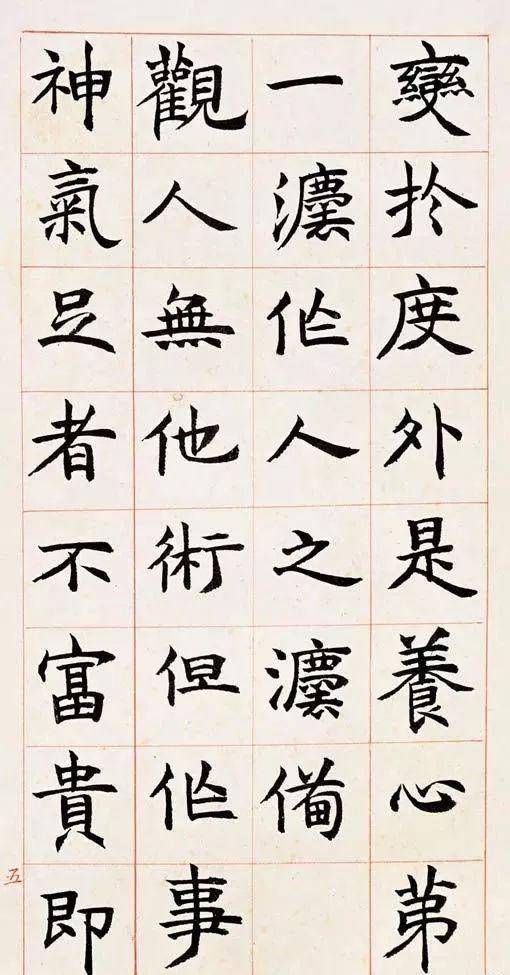 變扵度外是養心苐
一灋作人之灋備
觀人無他術但作事
神氣足者不富貴即
五